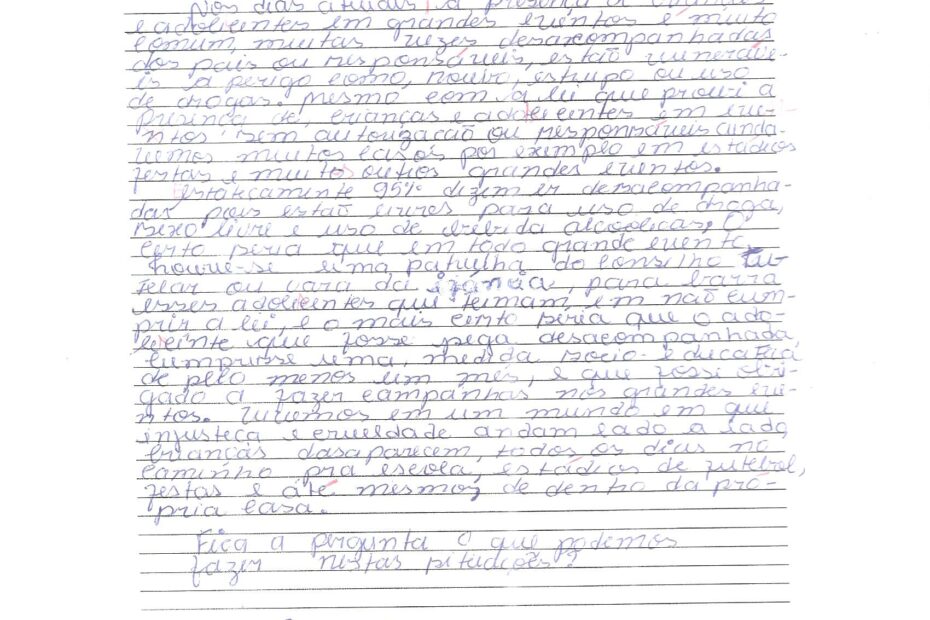 Nos dias atuais a presença de crianças
e adolicentes em grandes eventos é muito
comum, muitas vezes desacompanhadas
dos pais ou responsáveis, estão vunerave-
is a perigo como, roubo, estrupo ou uso
de drogas. Mesmo com a lei que proibi a
presença de, crianças e adolecentes em eve-
ntos sem autorização ou responsáveis ainda
vemos muitos casos por exemplo em estádios
festas e muitos outros grandes eventos.
estaticamente 95% dizem ir desacompanha-
das pois estão livres para uso de droga,
sexo livre e uso de bebida alcoolicas, O
certo seria que em todo grande evento,
houve-se uma patrulha do conselho tu-
telar ou vara da infância, para barra
esses adolicentes que teimam, em não cum-
prir a lei, e o mais certo seria que o ado-
lecente que fosse pega desacompanhada,
cumprisse uma, medida socio-educativa
de pelo menos um mês, e que fosse obri-
gado a fazer campanhas nos grandes eve-
ntos. Vivemos em um mundo em que
injusteça e crueldade andam lado a lado,
crianças dasaparecem, todos os dias no
caminho pra escola, estádios de futebol,
festas e até mesmo, de dentro da pró-
pria casa.
Fica a pergunta o que podemos
fazer nestas situações?